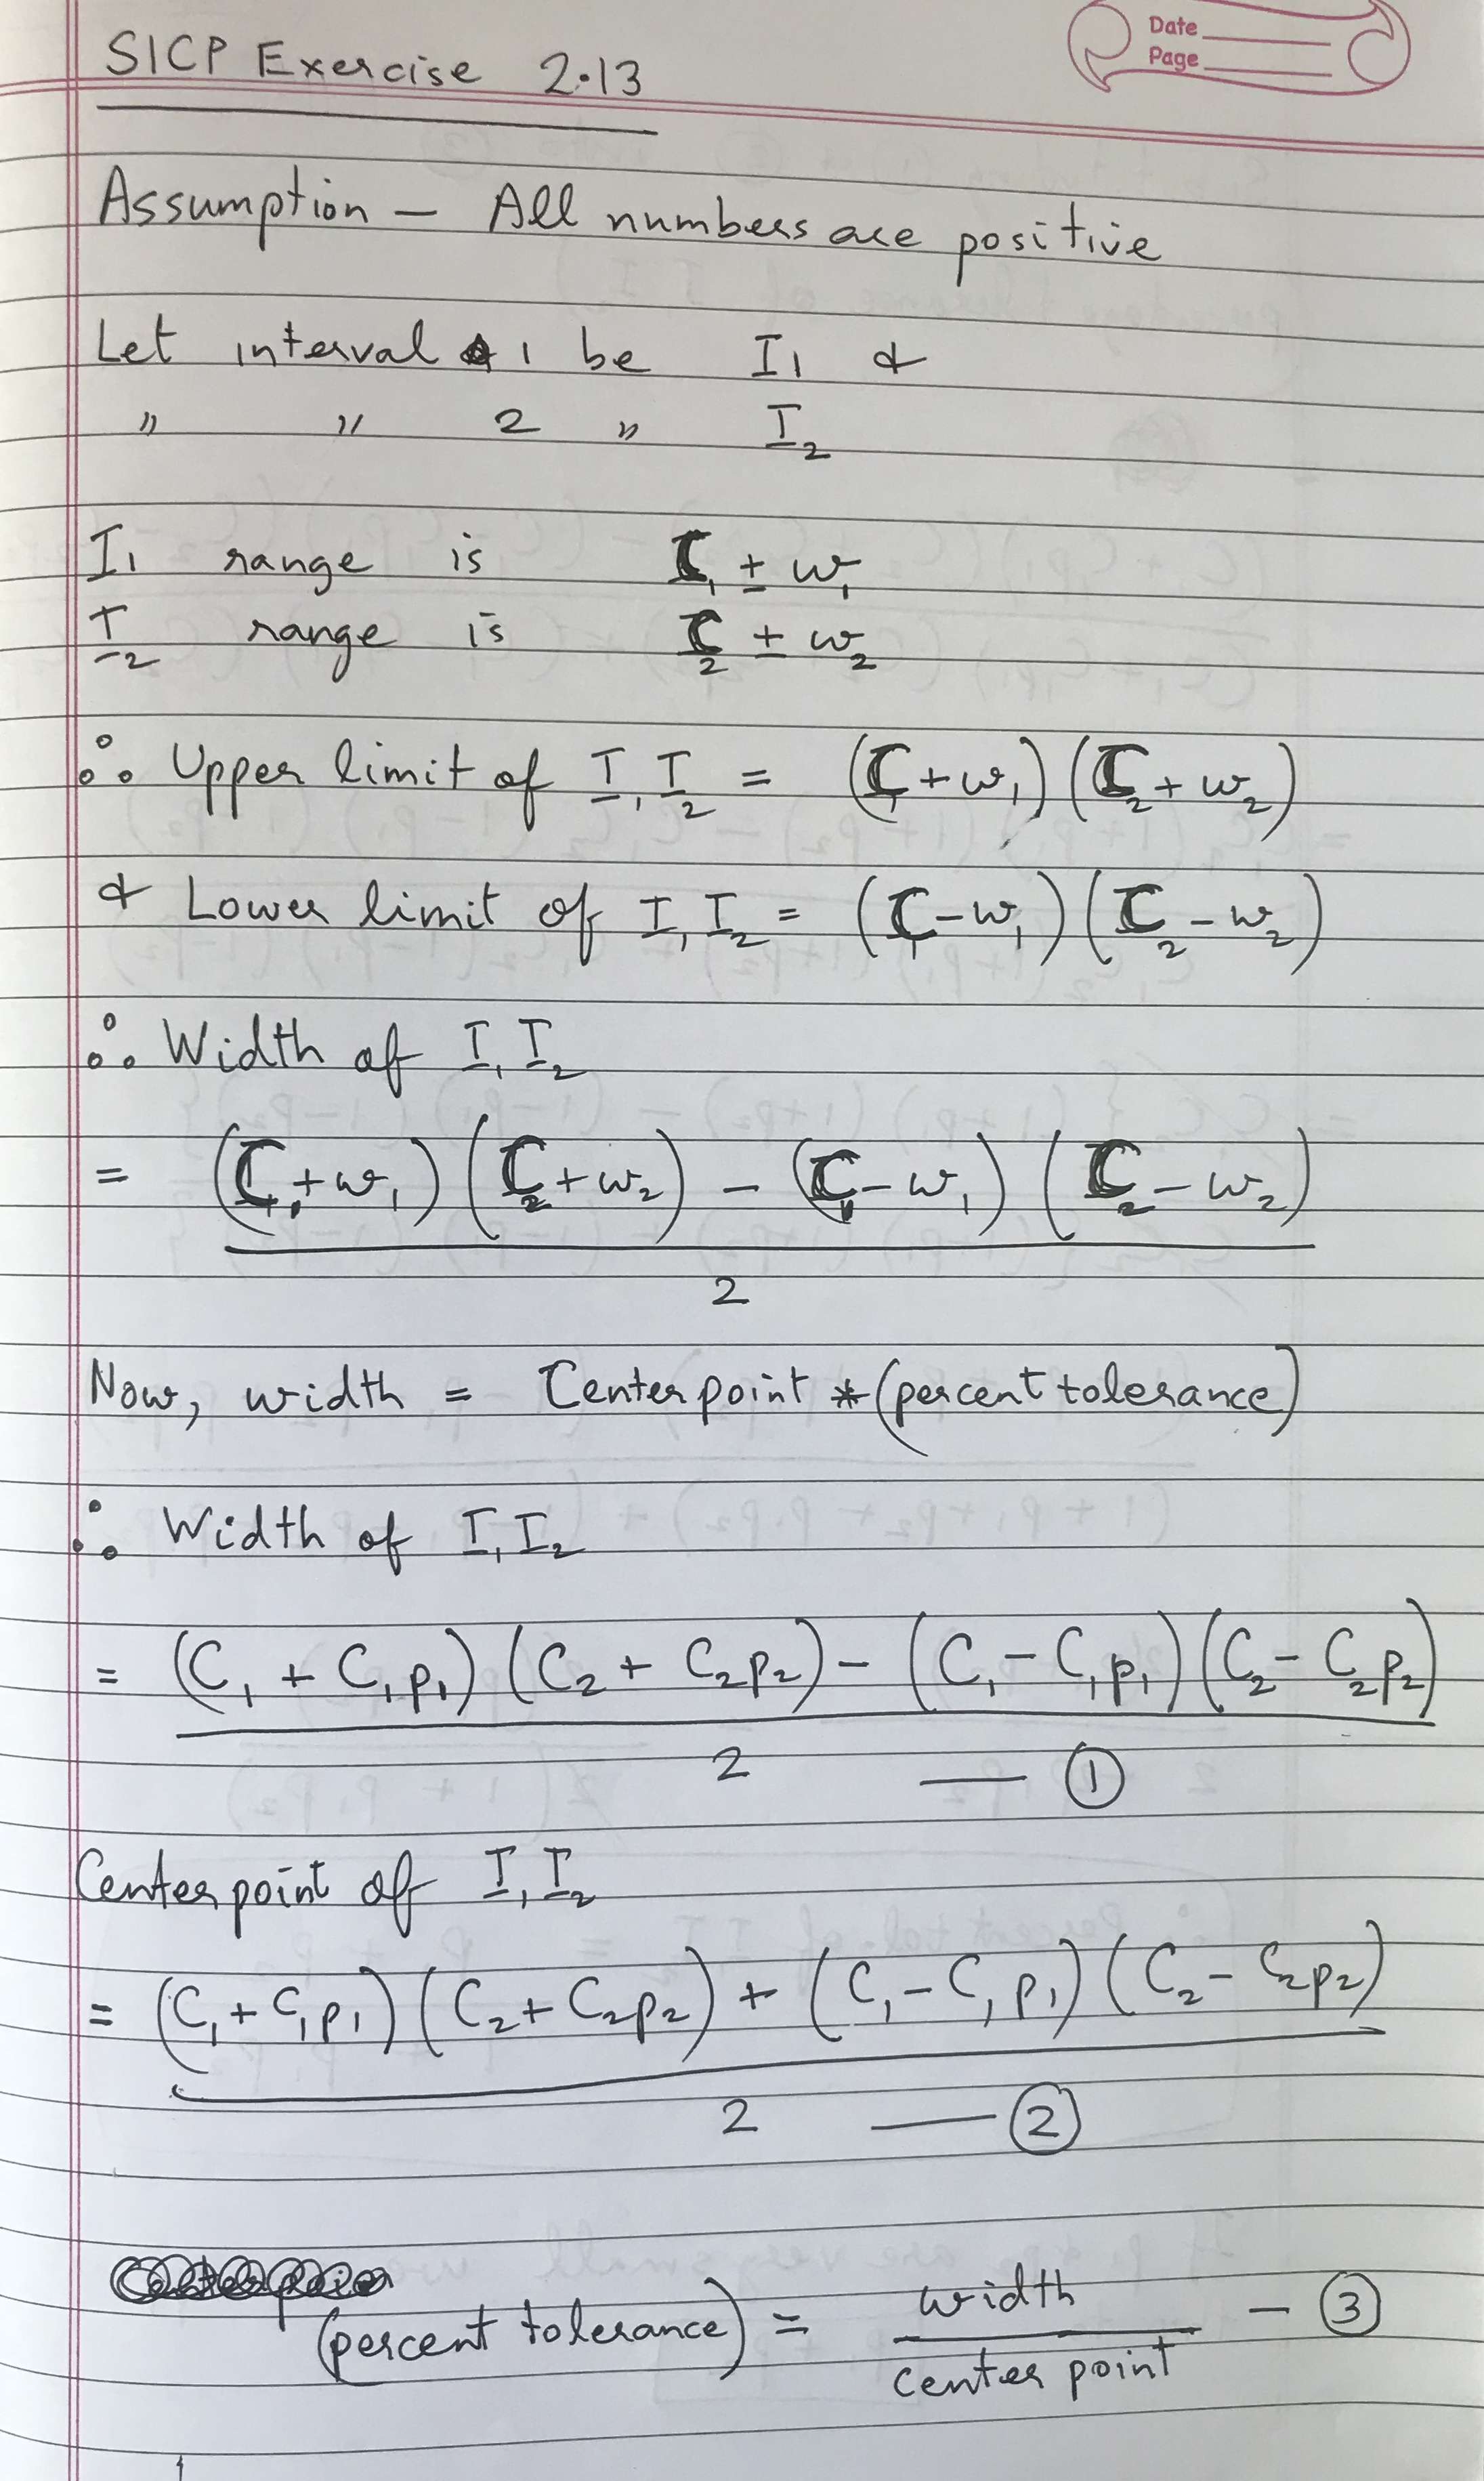 Date
Page
SICP Exercise 2.13
Assumption — All numbers are positive
Let interval 1 be I₁ &
" " 2 " I₂
I₁ range is C₁ ± w₁
I₂ range is C₂ ± w₂
∴ Upper limit of I₁I₂ = (C₁ + w₁) (C₂ + w₂)
& Lower limit of I₁I₂ = (C₁ - w₁) (C₂ - w₂)
∴ Width of I₁I₂
= (C₁ + w₁) (C₂ + w₂) - (C₁ - w₁) (C₂ - w₂)
2
Now, width = Center point * (percent tolerance)
∴ Width of I₁I₂
= (C₁ + C₁p₁) (C₂ + C₂p₂) - (C₁ - C₁p₁) (C₂ - C₂p₂)
2 — ①
Center point of I₁I₂
= (C₁ + C₁p₁) (C₂ + C₂p₂) + (C₁ - C₁p₁) (C₂ - C₂p₂)
2 — ②
(percent tolerance) = width / center point — ③